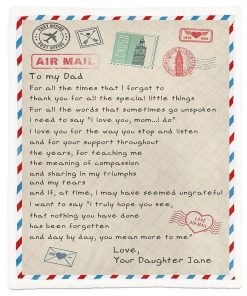 AIR MAIL
To my Dad
For all the times that I forgot to
thank you for all the special little things
For all the words that sometimes go unspoken
i need to say "i love you, mom...i do"
I love you for the way you stop and listen
and for your support throughout
the years, for teaching me
the meaning of compassion
and sharing in my triumphs
and my tears
and if, at time, i may have seemed ungrateful
i want to say "i truly hope you see,
that nothing you have done
has been forgotten
and day by day, you mean more to me"
Love,
Your Daughter Jane